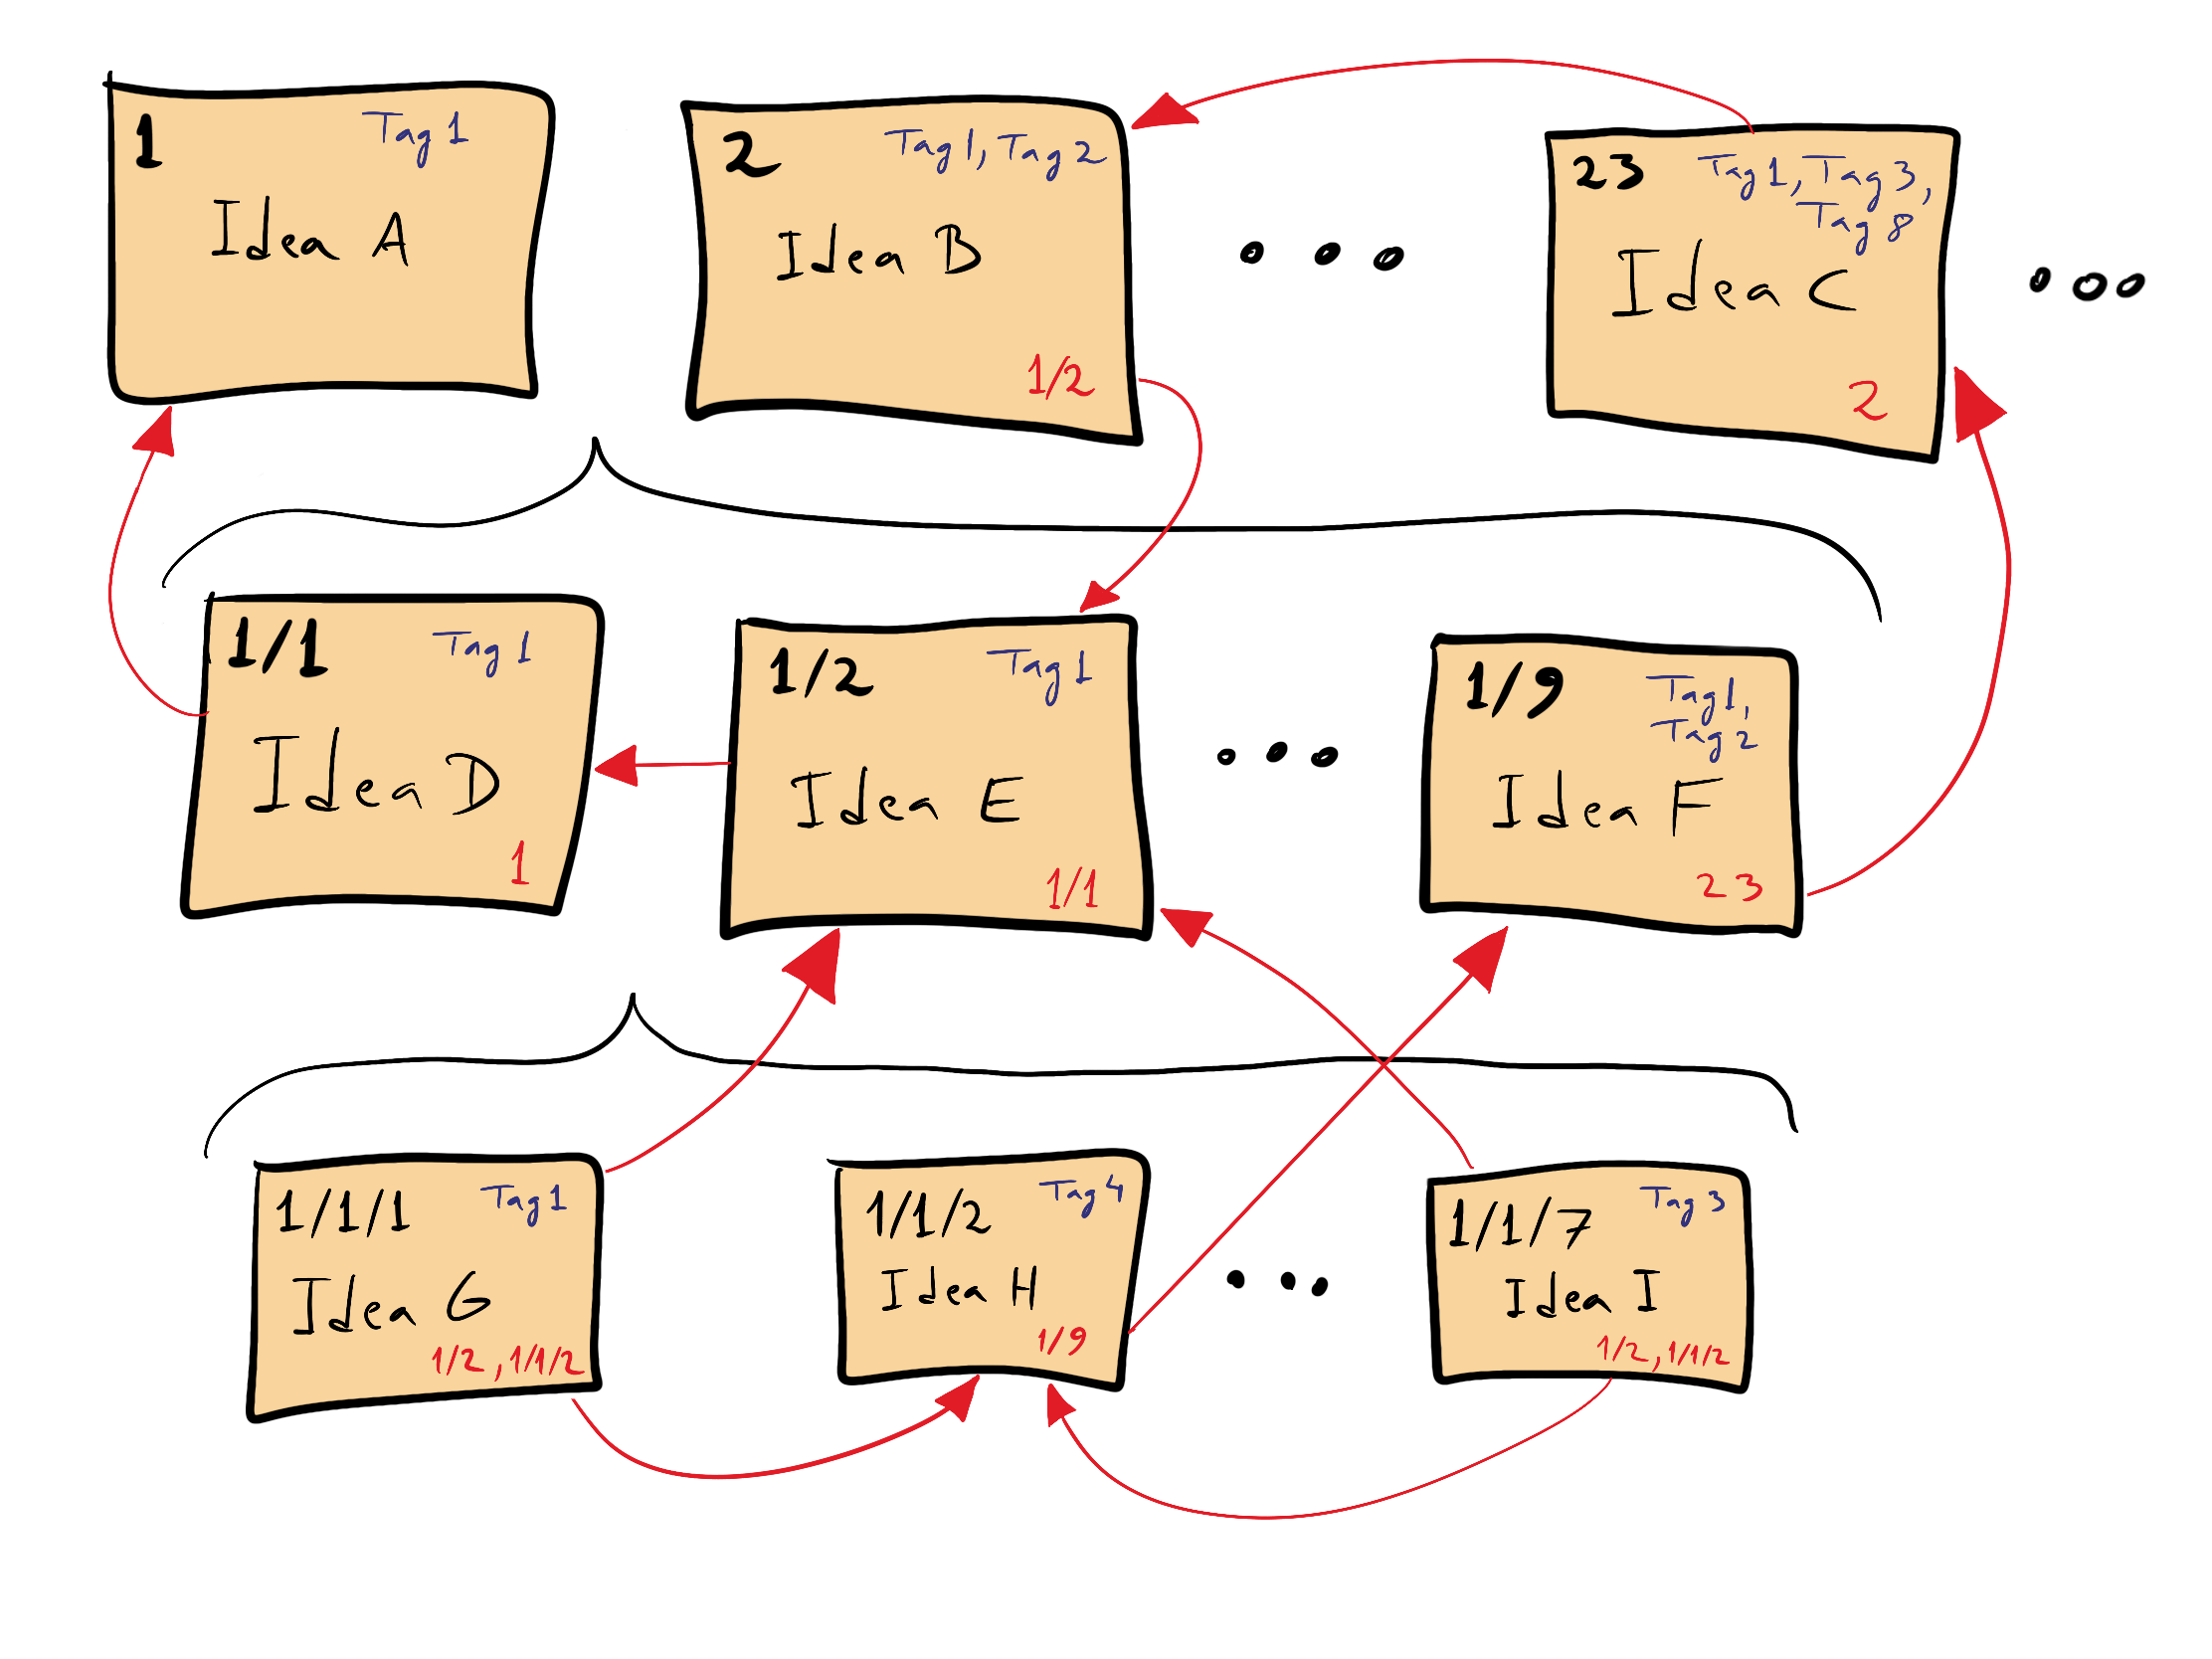 1 Tag 1
Idea A
2 Tag 1, Tag 2
Idea B
1/2
23 Tag 1, Tag 3,
Tag 8
Idea C
2
1/1 Tag 1
Idea D
1
1/2 Tag 1
Idea E
1/1
1/9 Tag 1,
Tag 2
Idea F
23
1/1/1 Tag 1
Idea G
1/2, 1/1/2
1/1/2 Tag 4
Idea H
1/9
1/1/7 Tag 3
Idea I
1/2, 1/1/2